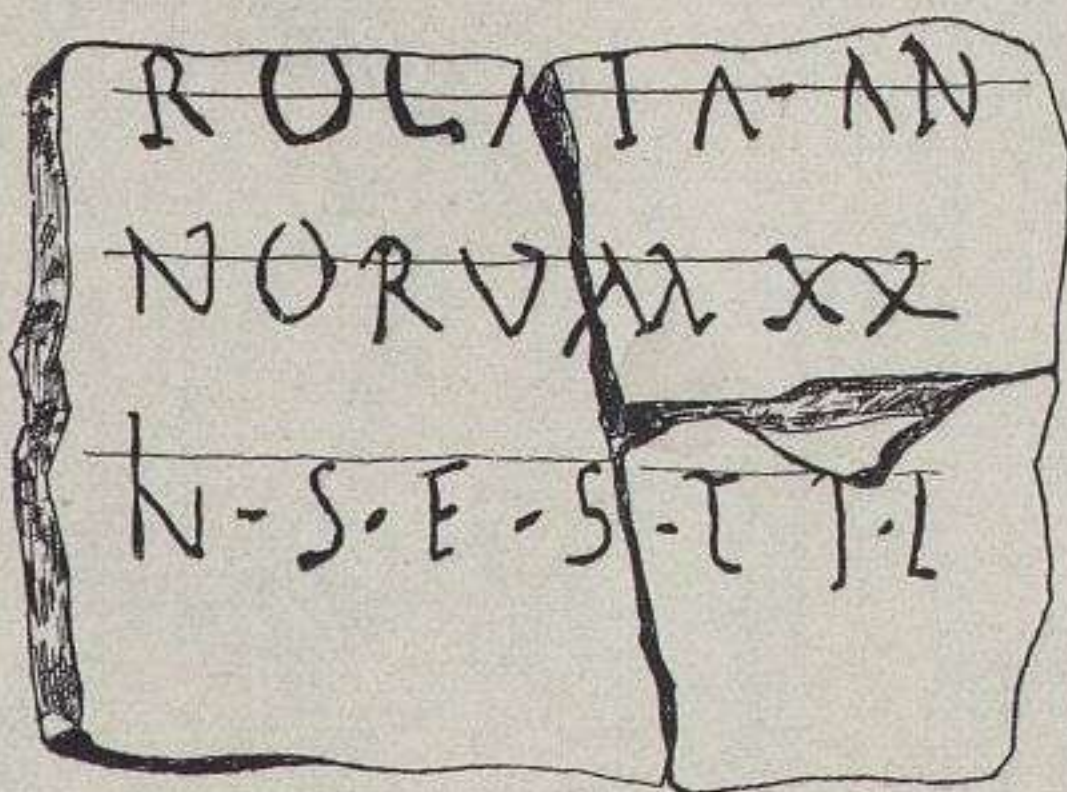 ROGATA·AN
NORVM XX
H·S·E·S·T T·L